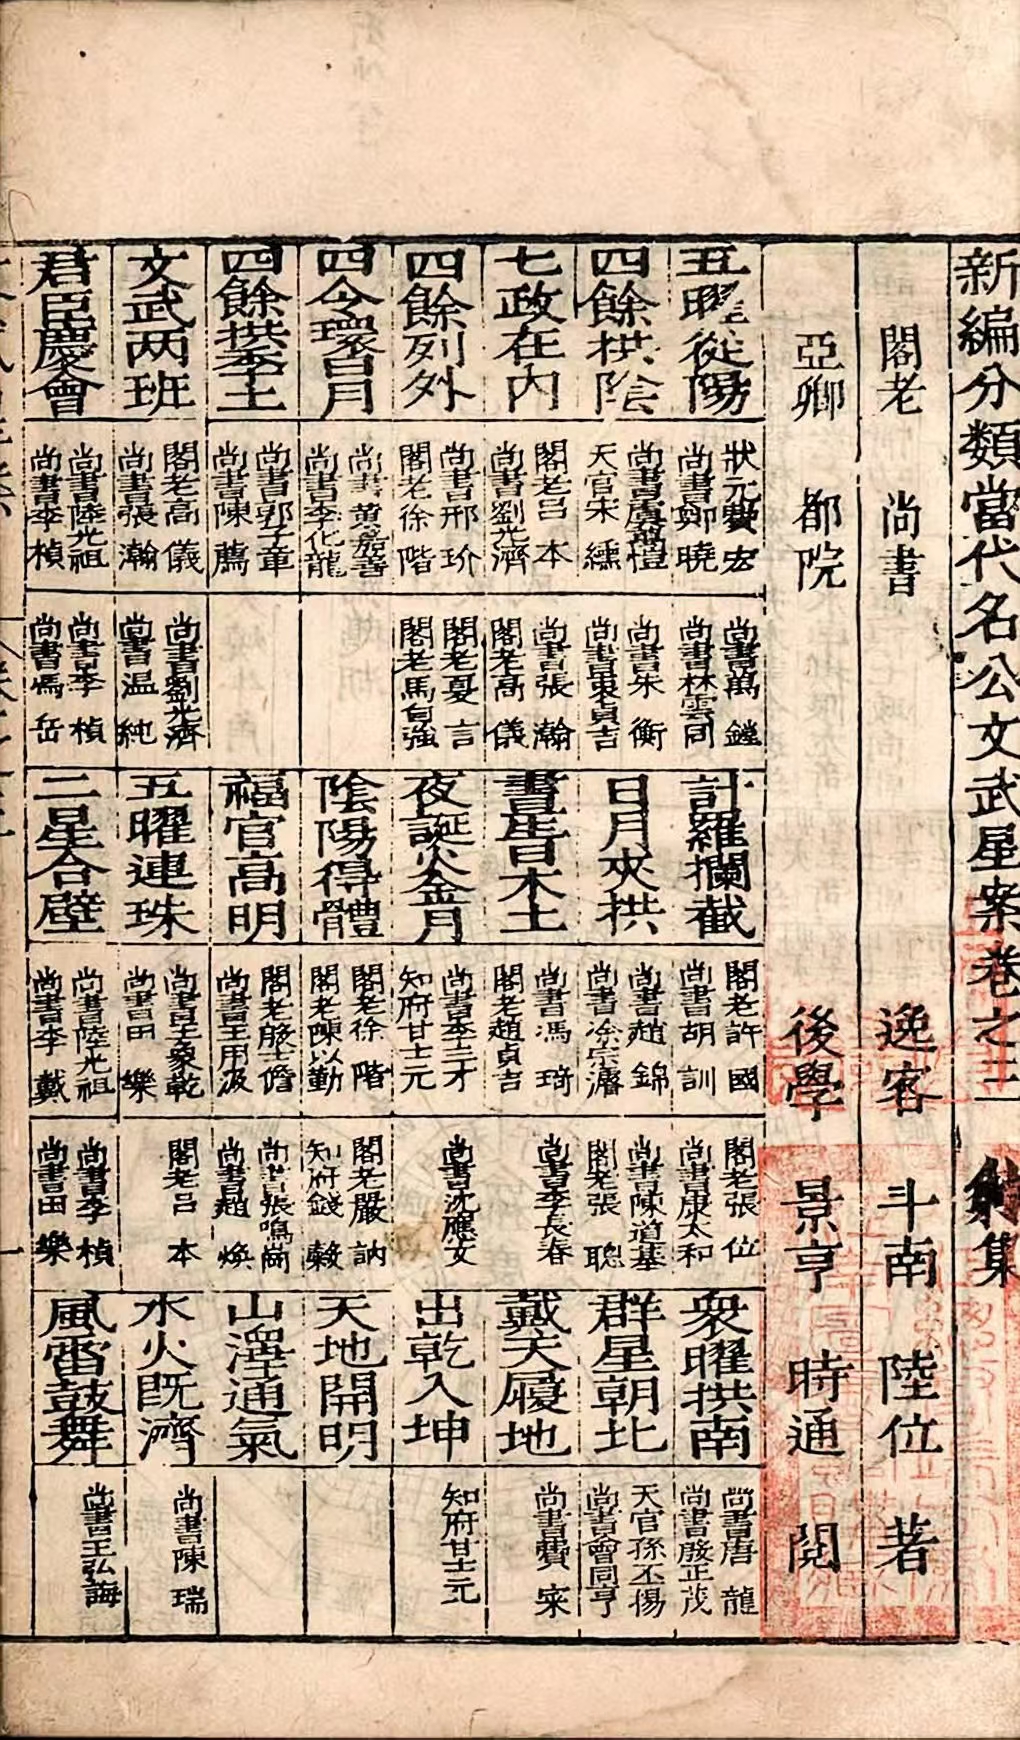 新編分類當代名公文武星案卷之三 射集
閣老 尚書 逸客 斗南 陸位 著
亞卿 都院 後學 景亨 時通 閱
五曜從陽
狀元費宏
尚書鄭曉
尚書萬鏜
尚書林雲同
計羅攔截
閣老許國
尚書胡訓
閣老張位
尚書康太和
衆曜拱南
尚書唐龍
尚書殷正茂
四餘拱陰
天官宋纁
尚書朱衡
日月夾拱
尚書趙錦
尚書凃宗濬
尚書陳道基
閣老張聰
群星朝北
天官孫丕揚
尚書曾同亨
七政在內
閣老吕本
尚書劉光濟
尚書張瀚
閣老高儀
晝生日木土
尚書馮琦
閣老趙貞吉
尚書李長春
戴天履地
尚書費寀
四餘列外
尚書邢玠
閣老徐階
閣老夏言
閣老馬自強
夜誕火金月
尚書李三才
知府甘士元
尚書沈應文
出乾入坤
知府甘士元
四令環日月
尚書李化龍
陰陽得體
閣老徐階
閣老陳以勤
閣老嚴訥
天地開明
四餘拱季土
尚書郭子章
尚書陳薦
福官高明
閣老殷士儋
尚書王用汲
尚書張鳴崗
尚書趙煥
山澤通氣
文武两班
閣老高儀
尚書張瀚
尚書劉光濟
尚書温純
五曜連珠
尚書王象乾
尚書田樂
閣老吕本
水火既濟
尚書陳瑞
君臣慶會
尚書陸光祖
尚書李楨
尚書李楨
尚書馮岳
二星合璧
尚書陸光祖
尚書李戴
尚書李楨
尚書田樂
風雷鼓舞
尚書王弘誨